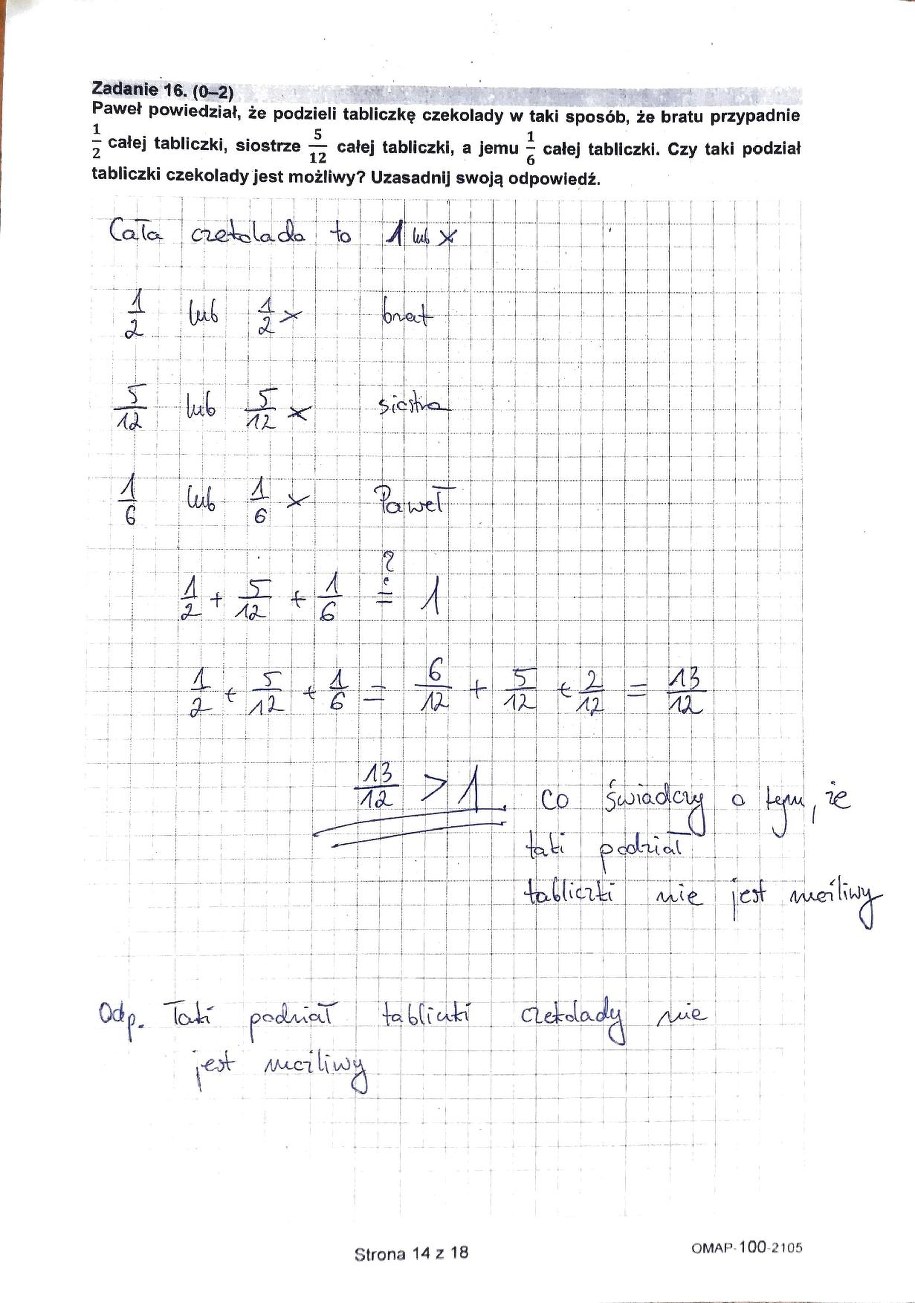 Zadanie 16. (0–2)
Paweł powiedział, że podzieli tabliczkę czekolady w taki sposób, że bratu przypadnie
1/2 całej tabliczki, siostrze 5/12 całej tabliczki, a jemu 1/6 całej tabliczki. Czy taki podział
tabliczki czekolady jest możliwy? Uzasadnij swoją odpowiedź.
Cała czekolada to 1 lub x
1/2 lub 1/2 x brat
5/12 lub 5/12 x siostra
1/6 lub 1/6 x Paweł
1/2 + 5/12 + 1/6 ?= 1
1/2 + 5/12 + 1/6 = 6/12 + 5/12 + 2/12 = 13/12
13/12 > 1. co świadczy o tym, że
taki podział
tabliczki nie jest możliwy
Odp. Taki podział tabliczki czekolady nie
jest możliwy
Strona 14 z 18
OMAP-100-2105